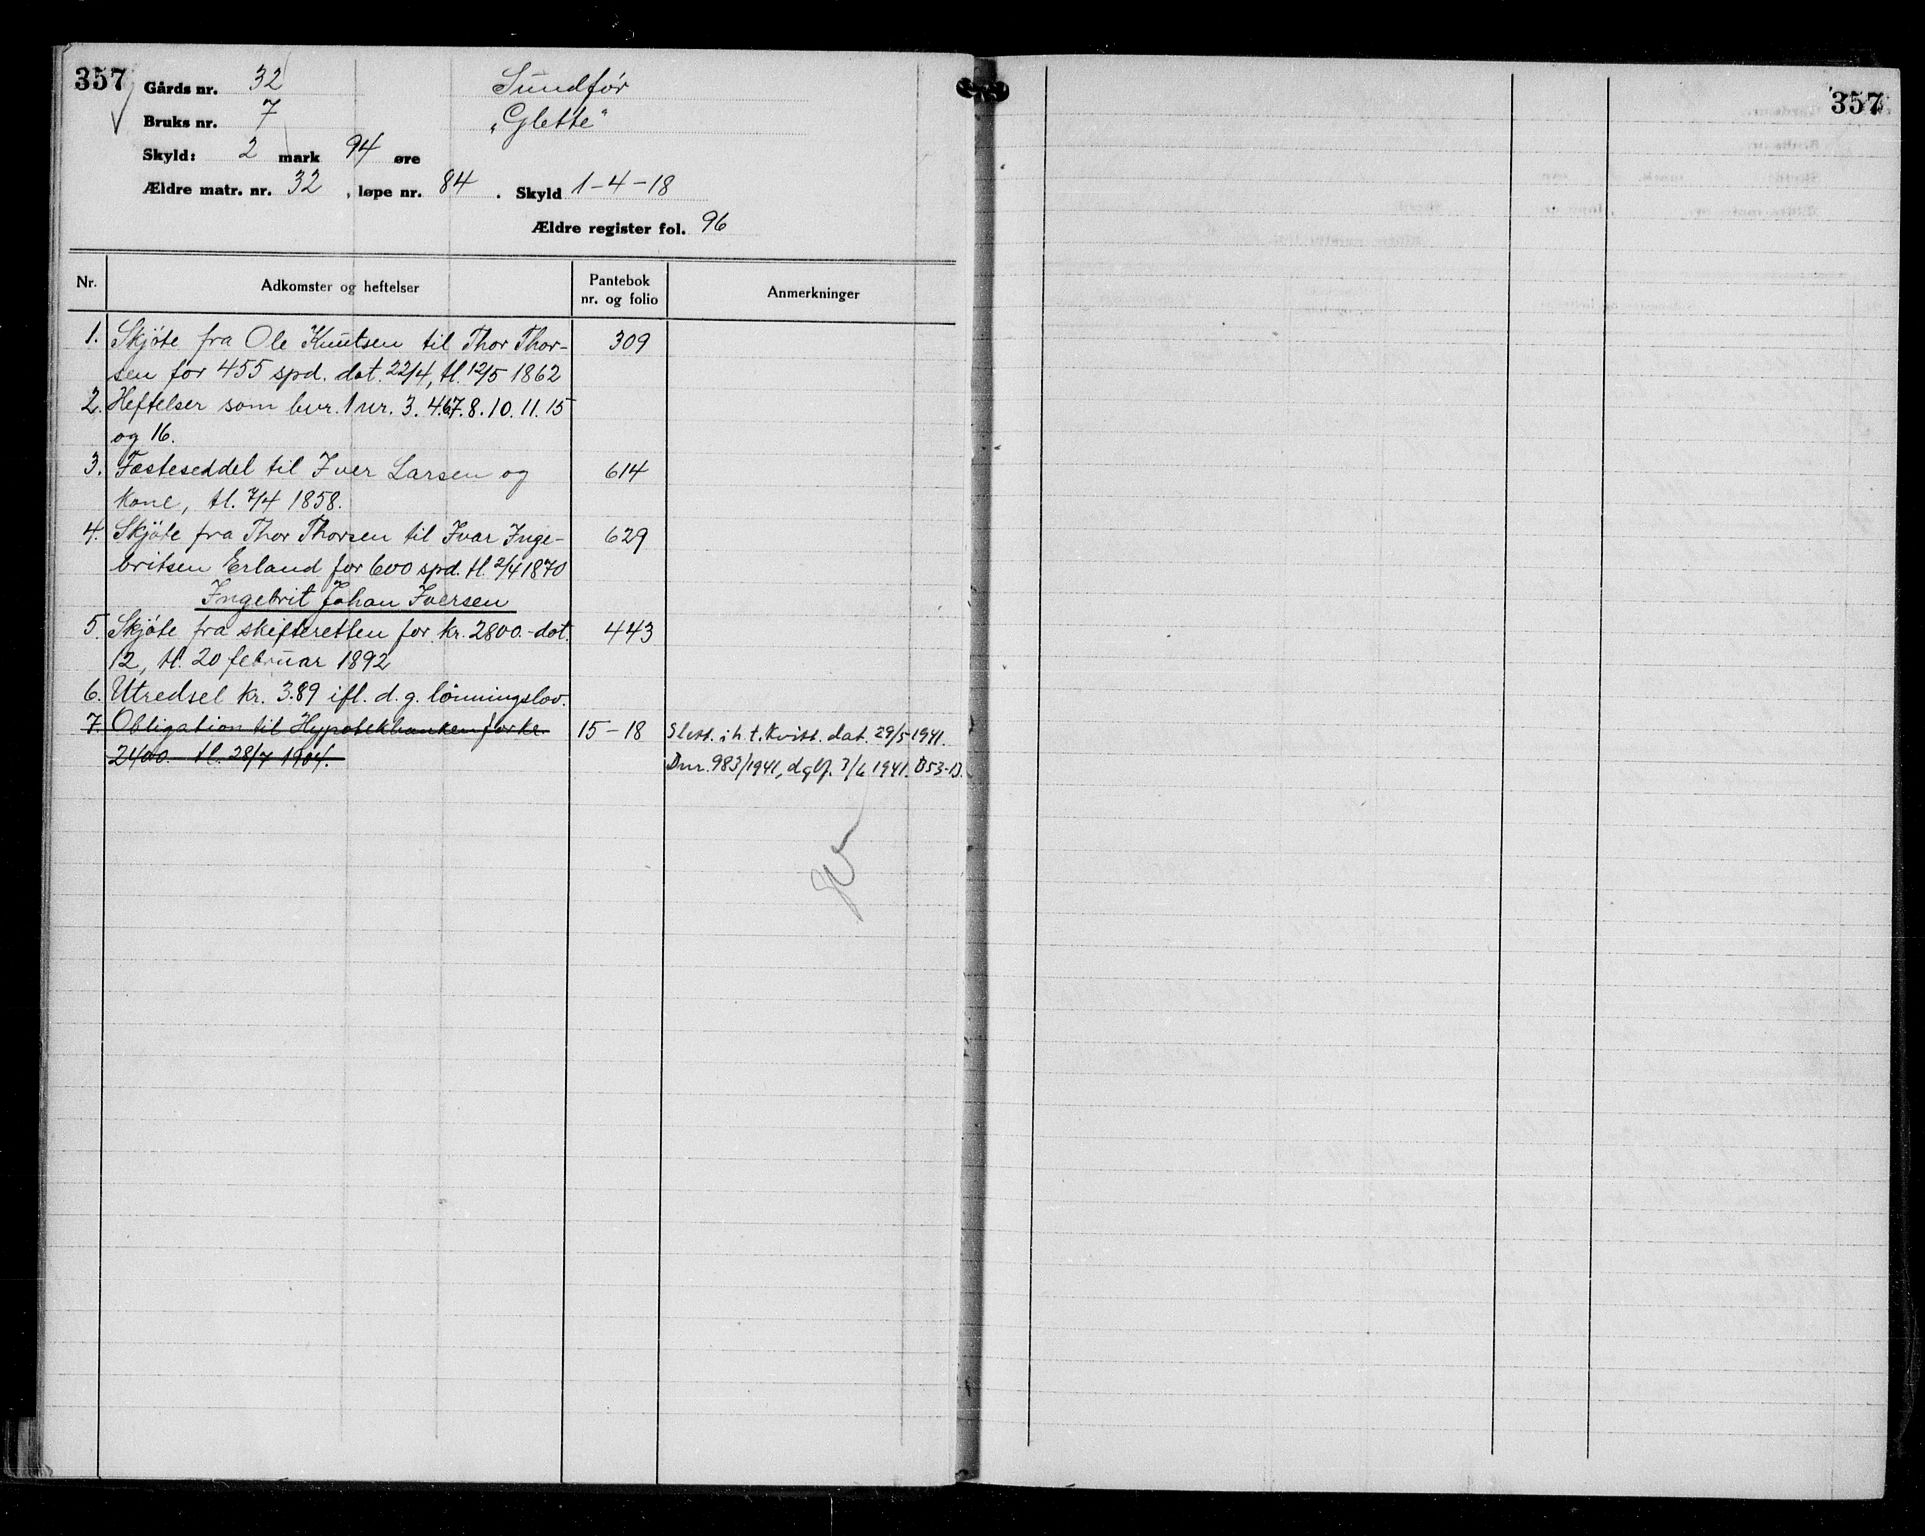 357
Gårds nr. 32 Sundfør
Bruks nr. 7 „Glette"
Skyld: 2 mark 94 øre
Ældre matr. nr. 32, løpe nr. 84. Skyld 1-4-18
Ældre register fol. 96
Nr. Adkomster og heftelser Pantebok nr. og folio Anmerkninger
1. Skjøte fra Ole Knutsen til Thor Thor- 309
sen for 455 spd. dat. 22/4, tl. 12/5 1862
2. Heftelser som bnr. 1 nr. 3. 4.6.7. 8. 10. 11. 15
og 16.
3. Fæsteseddel til Iver Larsen og 614
kone, tl. 7/4 1858.
4. Skjøte fra Thor Thorsen til Ivar Inge- 629
britsen Erland for 600 spd. tl. 2/4 1870
Ingebrit Johan Iversen
5. Skjøte fra skifteretten for kr. 2800.- dat. 443
12, tl. 20 februar 1892
6. Utredsel kr. 3.89 ifl. d. g. lønningslov.
7. Obligation til Hypotekbanken for kr. 15-18 Slett. i h. t. kvitt. dat. 29/5 1941.
2400. tl. 28/7 1904. Dnr. 983/1941, dgbf. 3/6 1941. D53-13.
357